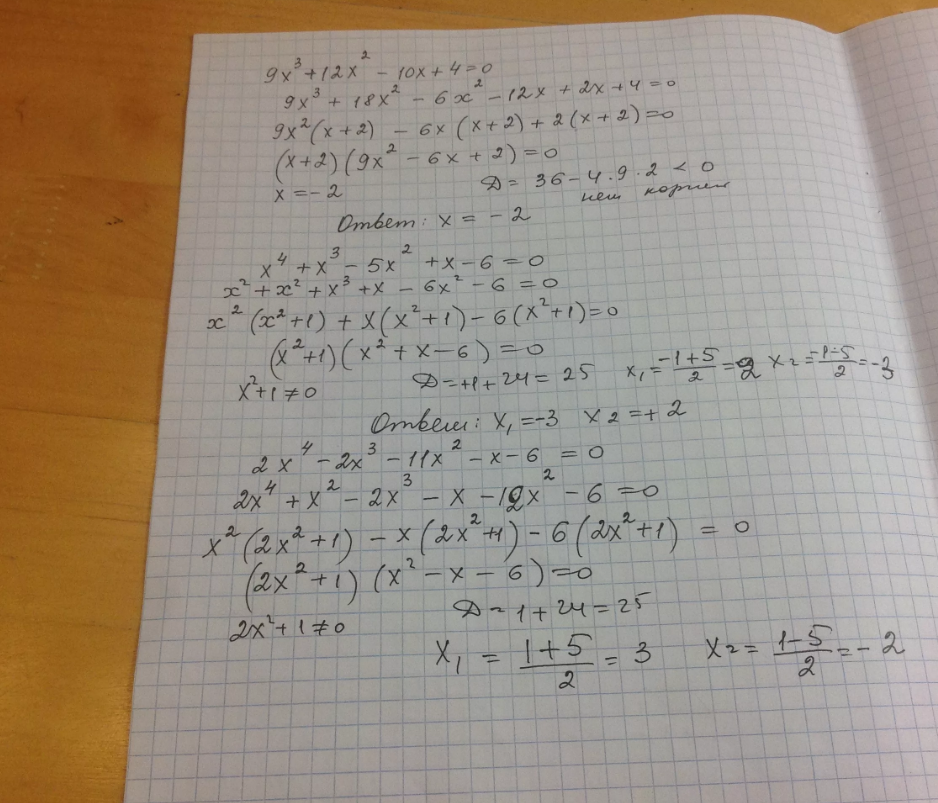 9x³ + 12x² - 10x + 4 = 0
9x³ + 18x² - 6x² - 12x + 2x + 4 = 0
9x²(x+2) - 6x(x+2) + 2(x+2) = 0
(x+2)(9x² - 6x + 2) = 0
x = -2 D = 36 - 4·9·2 < 0
нет корней
Ответ: x = -2
x⁴ + x³ - 5x² + x - 6 = 0
x² + x² + x³ + x - 6x² - 6 = 0
x²(x²+1) + x(x²+1) - 6(x²+1) = 0
(x²+1)(x² + x - 6) = 0
x²+1 ≠ 0 D = +1 + 24 = 25 x₁ = (-1+5)/2 = 2 x₂ = (-1-5)/2 = -3
Ответ: x₁ = -3 x₂ = +2
2x⁴ - 2x³ - 11x² - x - 6 = 0
2x⁴ + x² - 2x³ - x - 12x² - 6 = 0
x²(2x²+1) - x(2x²+1) - 6(2x²+1) = 0
(2x²+1)(x² - x - 6) = 0
2x²+1 ≠ 0 D = 1 + 24 = 25
x₁ = (1+5)/2 = 3 x₂ = (1-5)/2 = -2